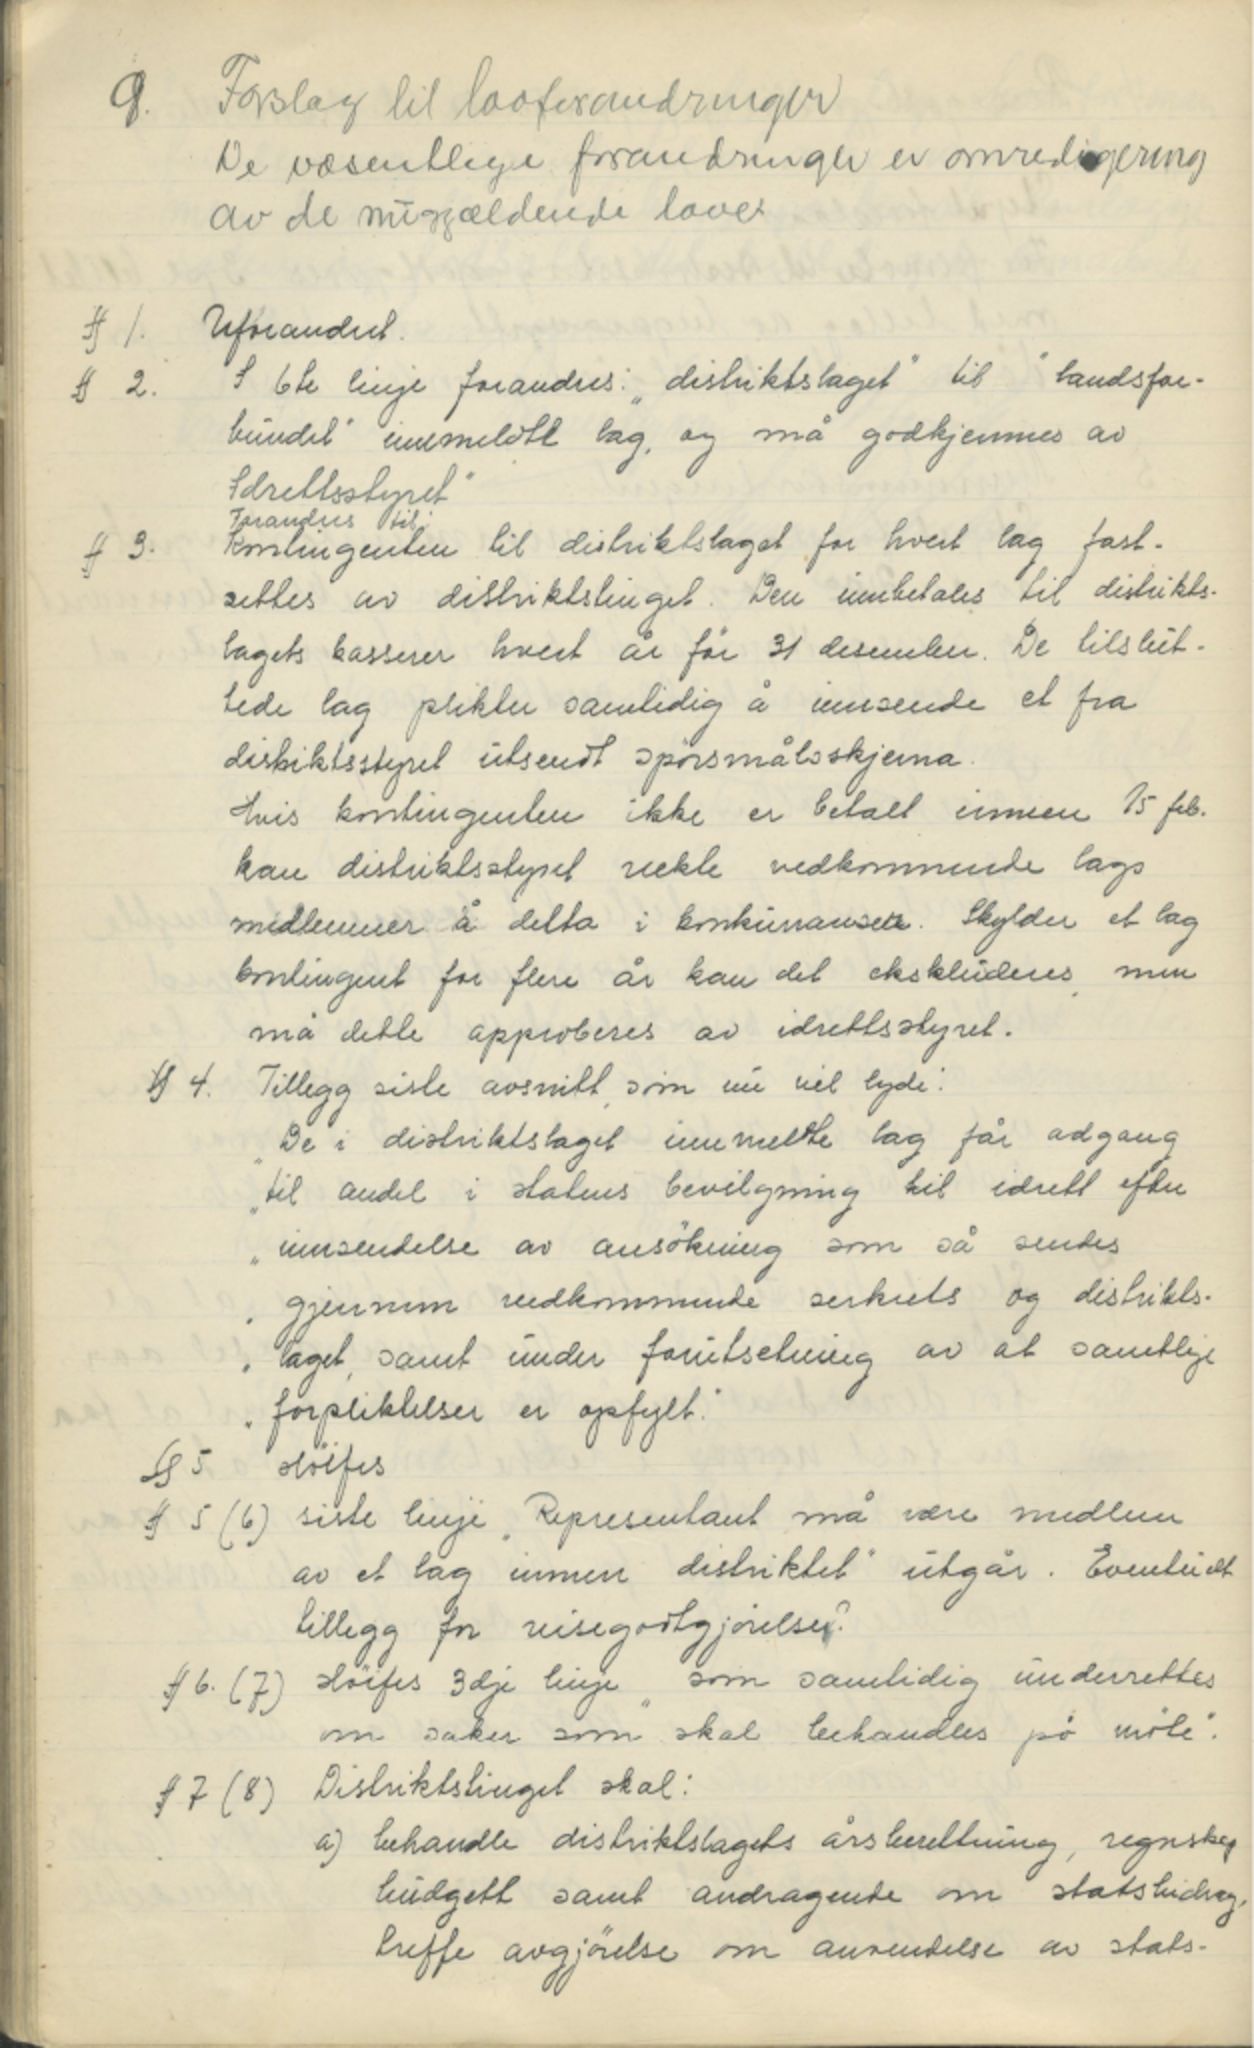 9. Forslag til lovforandringer
De væsentlige forandringer er omredigering
av de nugjældende lover
§ 1. Uforandret.
§ 2. I 6te linje forandres: „distriktslaget" til "landsfor-
bundet" innmeldt lag, og må godkjennes av
Idrettsstyret"
Forandres til:
§ 3. Kontingenten til distriktslaget for hvert lag fast-
settes av distriktstinget. Den innbetales til distrikts-
lagets kasserer hvert år før 31 desember. De tilslut-
tede lag plikter samtidig å innsende et fra
distriktsstyret utsendt spörsmålsskjema.
Hvis kontingenten ikke er betalt innen 15 feb.
kan distriktsstyret nekte vedkommende lags
medlemmer å delta i konkurranser. Skylder et lag
kontingent for flere år kan det ekskluderes, men
må dette approberes av idrettsstyret.
§ 4. Tillegg siste avsnitt, som nu vil lyde:
„De i distriktslaget innmeldte lag får adgang
„til andel i statens bevilgning til idrett efter
„innsendelse av ansökning som så sendes
„gjennem vedkommende serkrets og distrikts-
„laget, samt under forutsetning av at samtlige
„forpliktelser er opfylt."
§ 5 slöifes
§ 5 (6) siste linje „Representant må være medlem
av et lag innen distriktet" utgår. Eventuelt
tillegg for reisegodtgjörelser?
§ 6. (7) slöifes 3dje linje „som samtidig underrettes
om saker som skal behandles på möte".
§ 7 (8) Distriktstinget skal:
a) behandle distriktslagets årsberettning, regnskap
budgett samt andragende om statsbidrag,
treffe avgjörelse om anvendelse av stats-